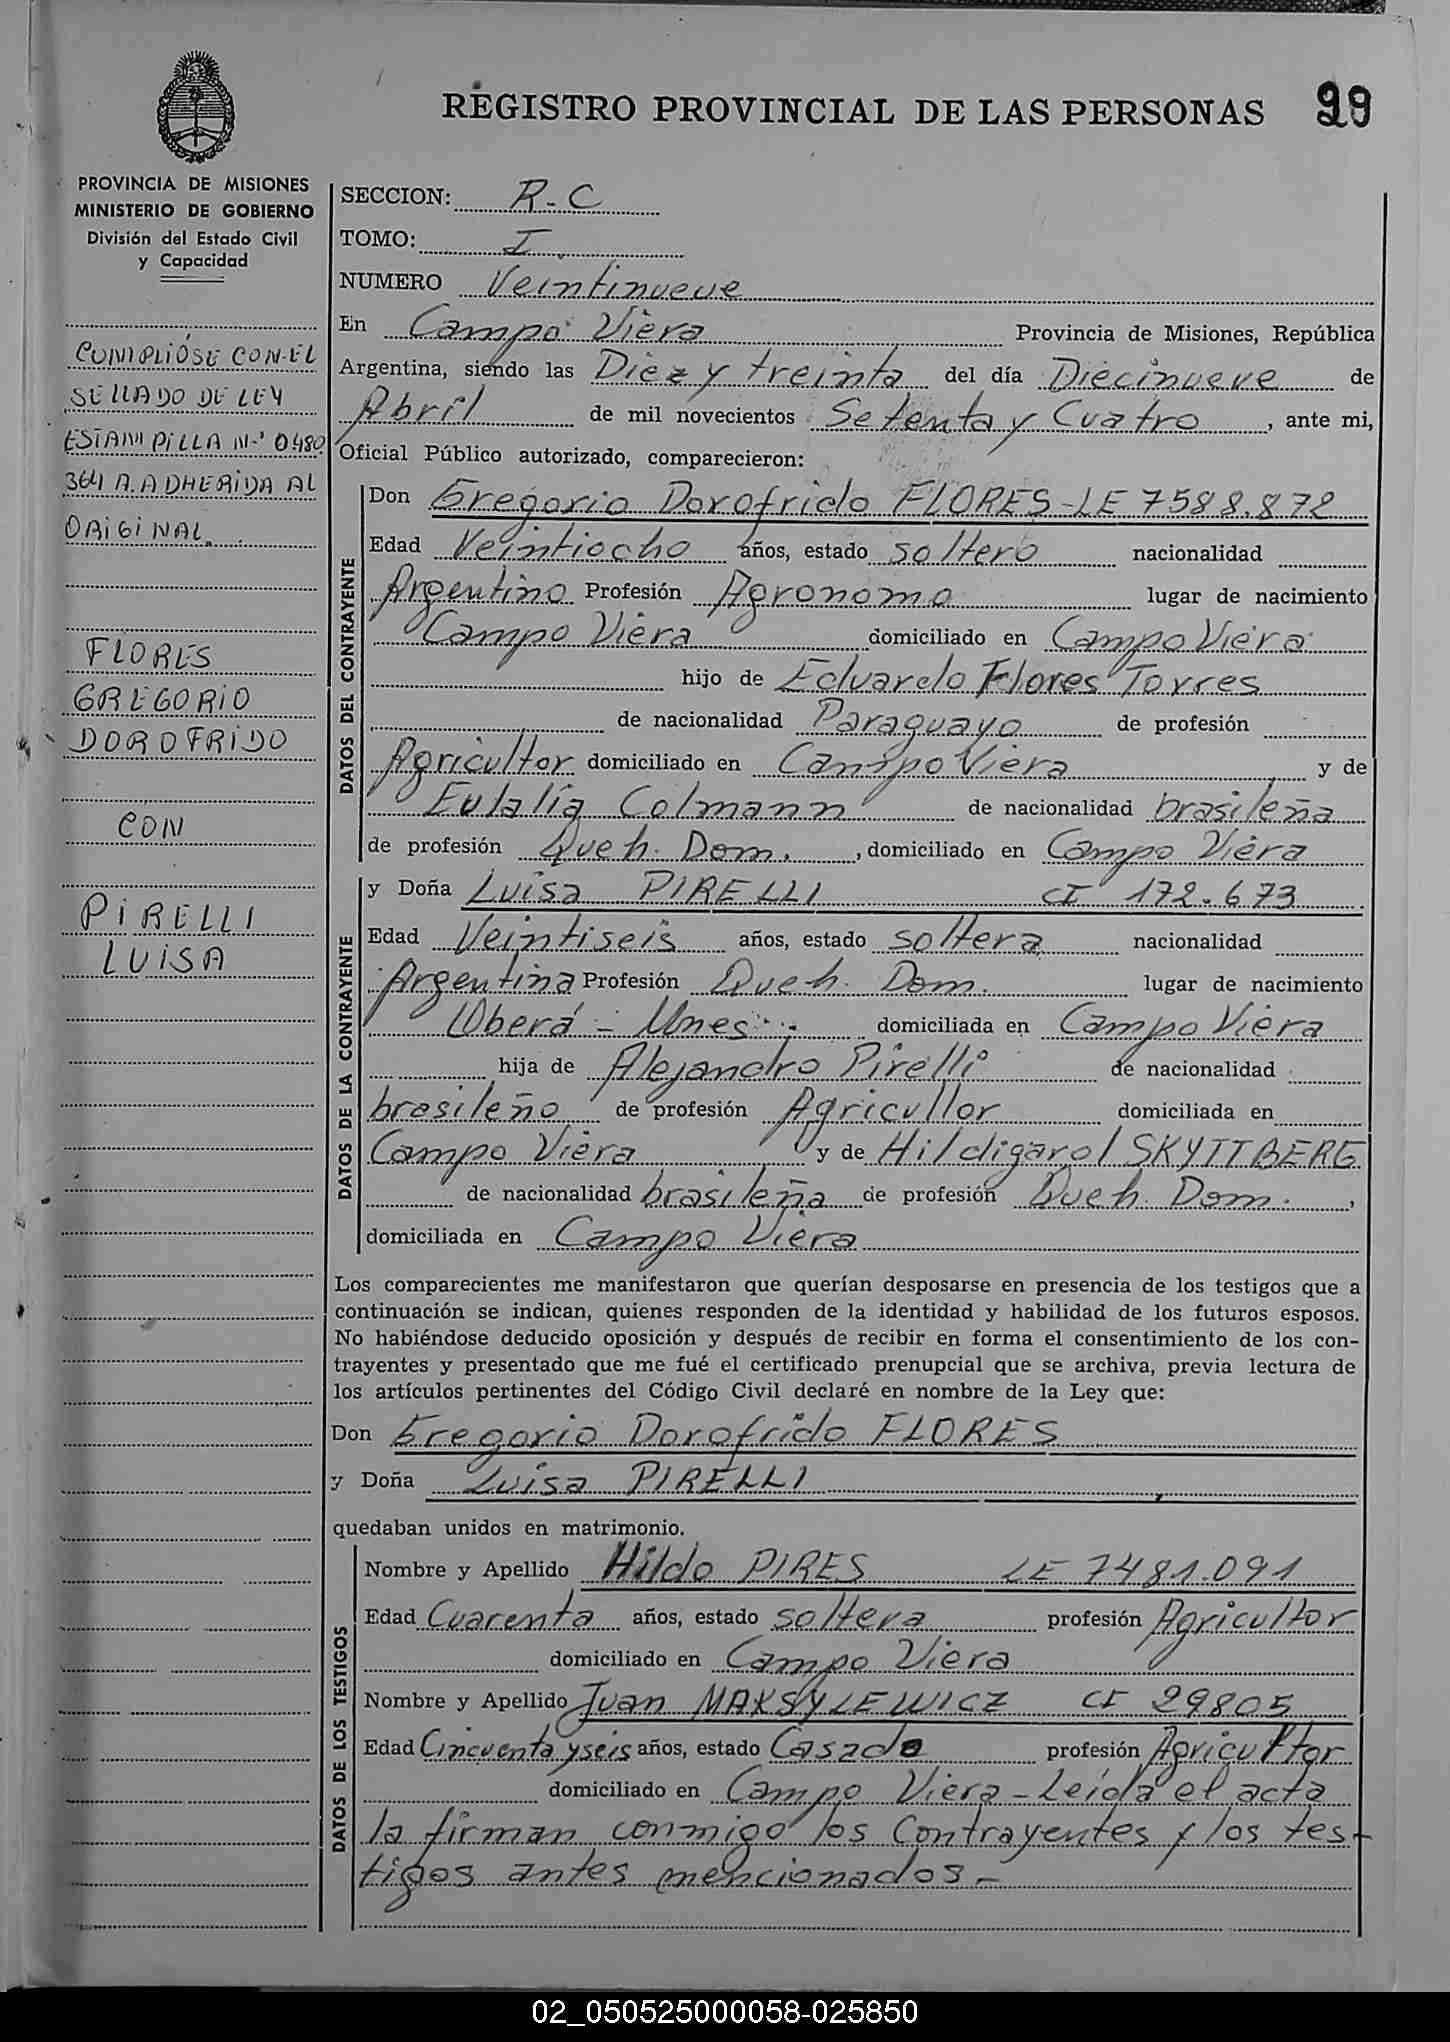 REGISTRO PROVINCIAL DE LAS PERSONAS 29
PROVINCIA DE MISIONES
MINISTERIO DE GOBIERNO
División del Estado Civil
y Capacidad
CUMPLIÓSE CON EL
SELLADO DE LEY
ESTAMPILLA N.º 0480
364 A. ADHERIDA AL
ORIGINAL.
FLORES
GREGORIO
DOROFRIDO
CON
PIRELLI
LUISA
SECCION: R-C
TOMO: I
NUMERO Veintinueve
En Campo Viera Provincia de Misiones, República
Argentina, siendo las Diez y treinta del día Diecinueve de
Abril de mil novecientos Setenta y Cuatro, ante mi,
Oficial Público autorizado, comparecieron:
DATOS DEL CONTRAYENTE
Don Gregorio Dorofrido FLORES-LE 7588.872
Edad Veintiocho años, estado soltero nacionalidad
Argentino Profesión Agronomo lugar de nacimiento
Campo Viera domiciliado en Campo Viera
hijo de Eduardo Flores Torres
de nacionalidad Paraguayo de profesión
Agricultor domiciliado en Campo Viera y de
Eulalia Colmann de nacionalidad brasileña
de profesión Queh. Dom., domiciliado en Campo Viera
DATOS DE LA CONTRAYENTE
y Doña Luisa PIRELLI CI 172.673
Edad Veintiseis años, estado soltera nacionalidad
Argentina Profesión Queh. Dom. lugar de nacimiento
Oberá - Mnes. domiciliada en Campo Viera
hija de Alejandro Pirelli de nacionalidad
brasileño de profesión Agricultor domiciliada en
Campo Viera y de Hildigard SKYTTBERG
de nacionalidad brasileña de profesión Queh. Dom.,
domiciliada en Campo Viera
Los comparecientes me manifestaron que querían desposarse en presencia de los testigos que a
continuación se indican, quienes responden de la identidad y habilidad de los futuros esposos.
No habiéndose deducido oposición y después de recibir en forma el consentimiento de los con-
trayentes y presentado que me fué el certificado prenupcial que se archiva, previa lectura de
los artículos pertinentes del Código Civil declaré en nombre de la Ley que:
Don Gregorio Dorofrido FLORES
y Doña Luisa PIRELLI
quedaban unidos en matrimonio.
DATOS DE LOS TESTIGOS
Nombre y Apellido Hildo PIRES LE 7481.091
Edad Cuarenta años, estado soltera profesión Agricultor
domiciliado en Campo Viera
Nombre y Apellido Juan MAKSYLEWICZ CI 29805
Edad Cincuenta y seis años, estado Casado profesión Agricultor
domiciliado en Campo Viera - Leída el acta
la firman conmigo los Contrayentes y los tes-
tigos antes mencionados-
02_050525000058-025850